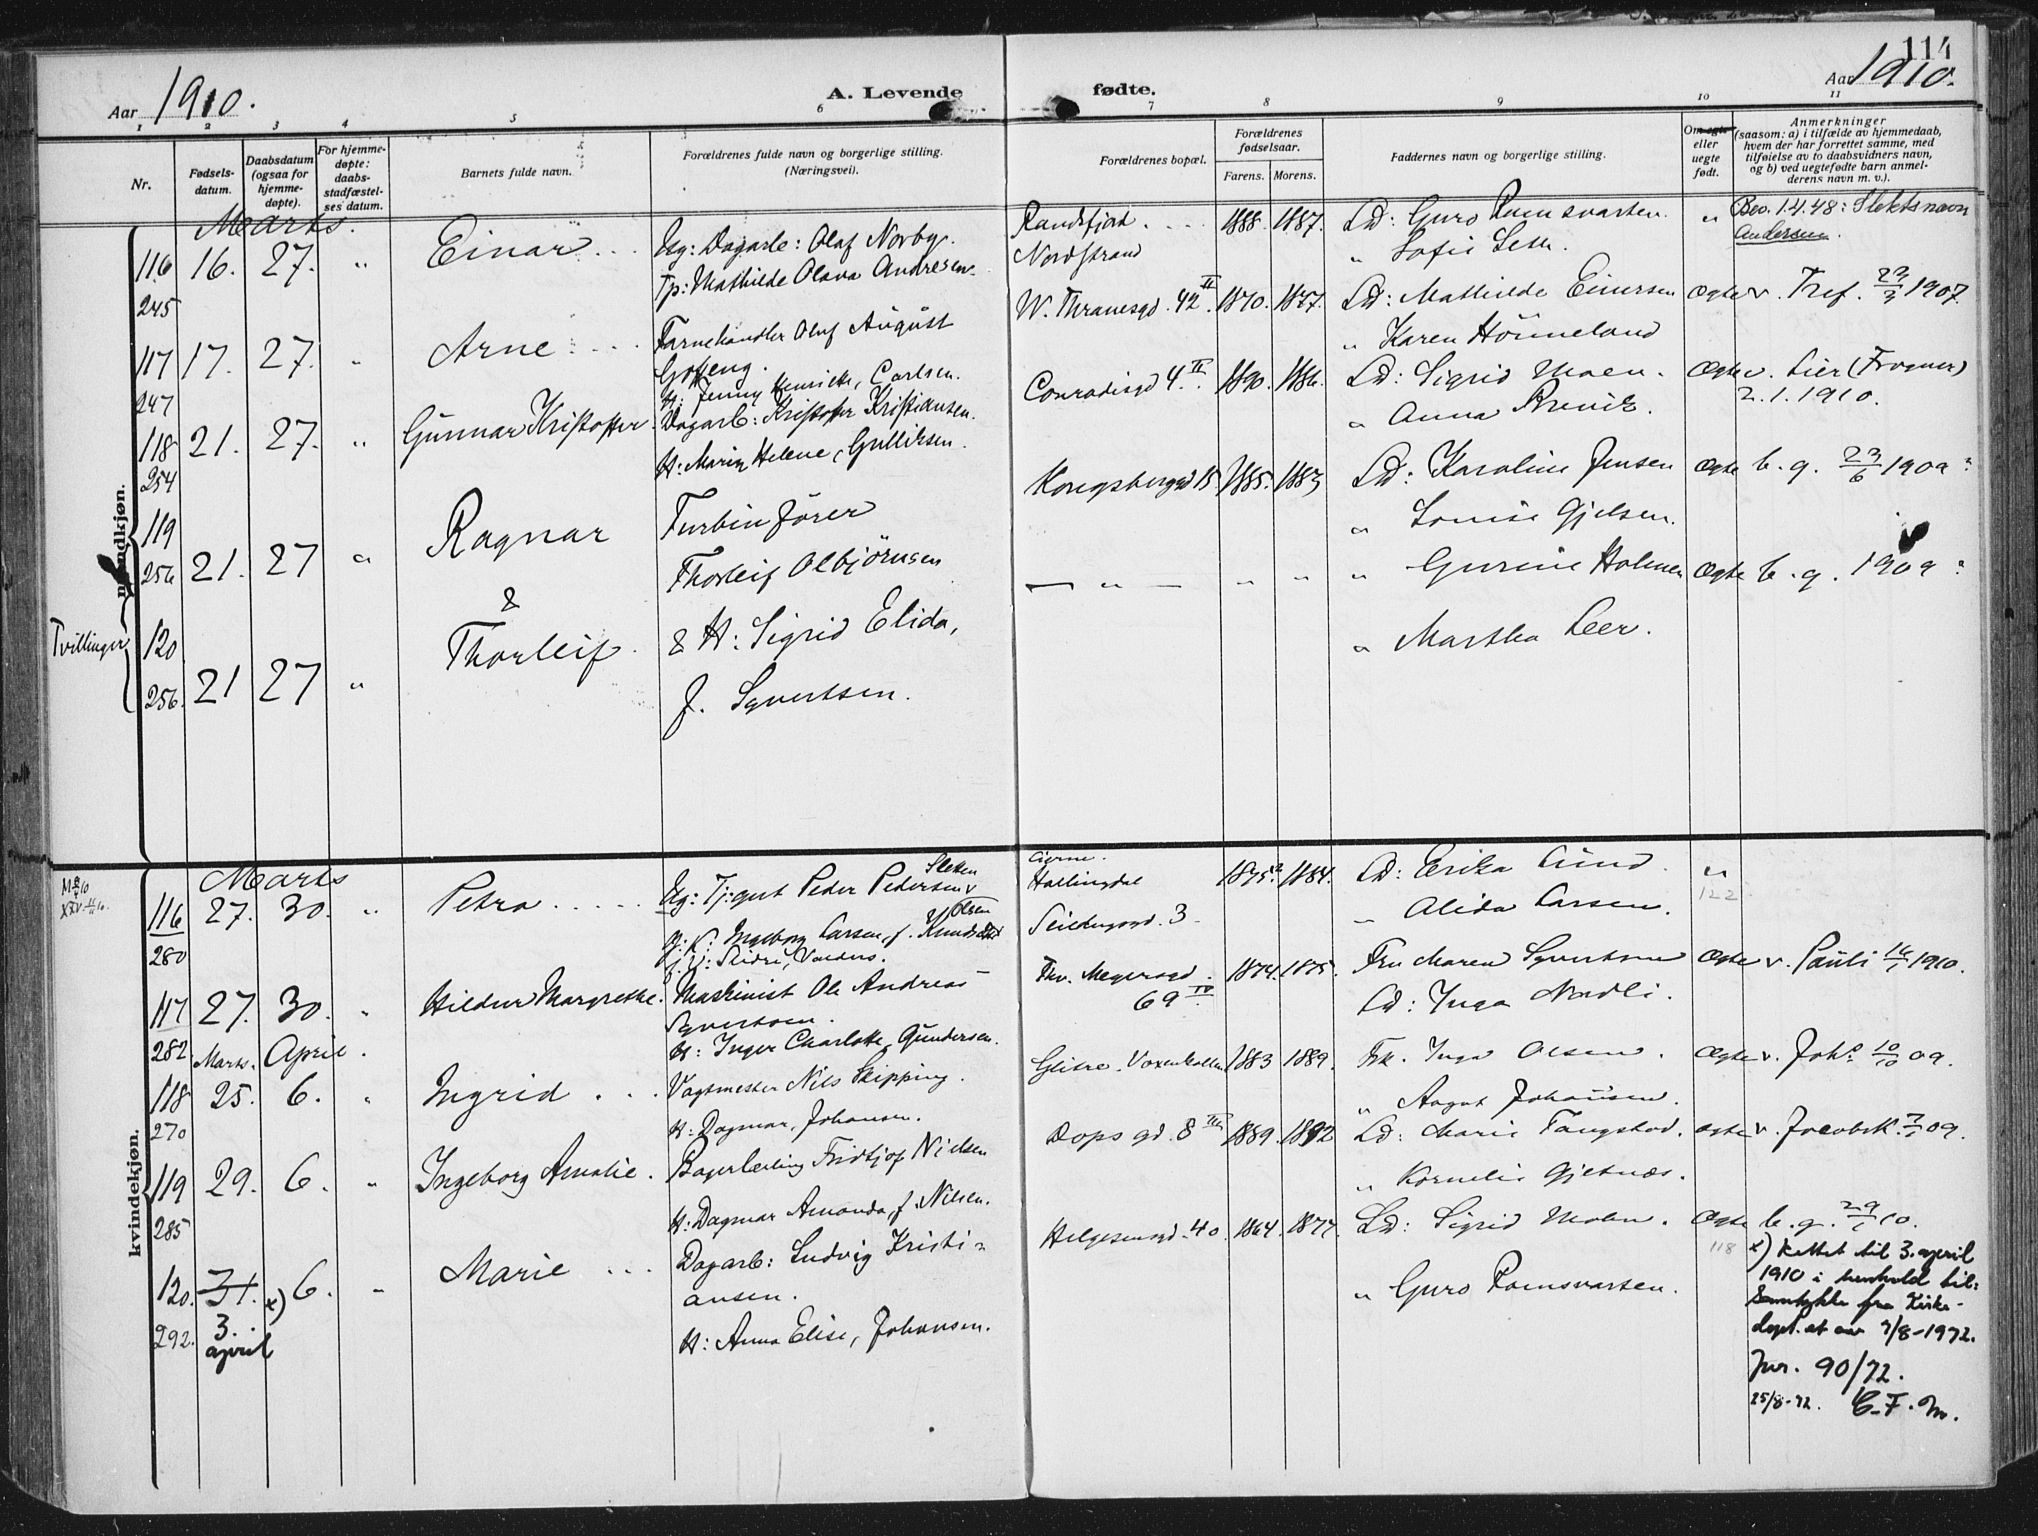 114
Aar 1910.
A. Levende
fødte.
Aar 1910.
1 2 3 4 5 6 7 8 9 10 11
Nr.
Fødsels-
datum.
Daabsdatum
(ogsaa for
hjemme-
døpte).
For hjemme-
døpte:
daabs-
stadfæstel-
ses datum.
Barnets fulde navn.
Forældrenes fulde navn og borgerlige stilling.
(Næringsvei).
Forældrenes bopæl.
Forældrenes
fødselsaar.
Farens. Morens.
Faddernes navn og borgerlige stilling.
Om egte
eller
uegte
født.
Anmerkninger
(saasom: a) i tilfælde av hjemmedaab,
hvem der har forrettet samme, med
tilføielse av to daabsvidners navn,
og b) ved uegtefødte barn anmel-
derens navn m. v.).
mandkjøn.
Marts.
116
245
16. 27. "
Einar
Ug: Dagarb: Olaf Norby.
Tp: Mathilde Olava Andresen
Randsfjord
Nordstrand
1888. 1887.
Ld: Guro Ramsvarten.
" Sofie
"
Bev. 1.4.48: Slektsnavn
Andersen.
117
247
17. 27. "
Arne
Farvehandler Oluf August
H: Jenny Henriette, Carlsen.
W. Thranesgd. 42 II
1870. 1877.
Ld: Mathilde Einersen
" Karen Hönneland
Ægte v. Tref. 23/3 1907.
118
254
21. 27. "
Gunnar Kristoffer
Dagarb: Kristoffer Kristiansen.
H: Marie Helene, Gulliksen.
Conradisgd 4. II
1890. 1886.
Ld: Sigrid Moen.
" Anna
Ægte v. Lier (Frogner)
2.1.1910.
Tvillinger
119
256
21. 27 "
Ragnar
&
120
256.
21 27 "
Thorleif.
Turbinfører
Thorleif Olbjörnsen
& H: Sigrid Elida,
f. Syvertsen.
Kongsberggd 15.
1885. 1883
Ld: Karoline Jensen
" Louise Gjelsen.
Ægte b. g. 23/6 1909
— " —
" "
" Gurine Holmen
" Martha Leer.
Ægte b. g. 1909
kvindekjøn.
Marts
116
280
27. 30. "
Petra
Ug: Tj:gut Peder Pedersen Sletten
Pj: K: Ingeborg Larsen, f. Olsen
Slidre, Valders.
Hallingdal
Seildugsgd. 3
1875. 1884.
Ld: Erika Lund.
" Alida Larsen.
"
122
117
282
27. 30. "
Hildur Margrethe.
Maskinist Ole Andreas
Syvertsen.
H: Inger Charlotte, Gundersen.
Thv. Meyersgd.
69 IV
1874. 1875.
Fru Maren Syvertsen
Ld: Inga Nordli.
Ægte v. Pauli 16/1 1910.
Marts. April.
118
270
25. 6. "
Ingrid
Vagtmester Nils Skipping.
H: Dagmar, Johansen.
Glitre. Voxenkollen
1883 1889.
Frk. Inga Olsen.
" Aagot Johansen.
Ægte v. Joh: 10/10 09.
119
285
29. 6. "
Ingeborg Amalie.
Bagerlærling Fridtjof Nielsen
H: Dagmar Amanda, f. Nilsen.
Dops gd. 8 III
1889. 1892
Ld: Marie Tangstad.
" Kornelie Gjetnæs.
Ægte v. Jacobsk. 7/1 09.
120.
292.
31. x) 6. "
3.
april
Marie
Dagarb: Ludvig Kristi-
ansen.
H: Anna Elise, Johansen.
Helgesensgd. 40.
1864. 1877.
Ld: Sigrid Moen.
" Guro Ramsvarten.
Ægte b. g. 29/1 10.
118
x) Rettet til 3. april
1910 i henhold til
Samtykke fra Kirke-
dept. at av 7/8-1972.
Jnr. 90/72.
25/8-72. C.F.M.